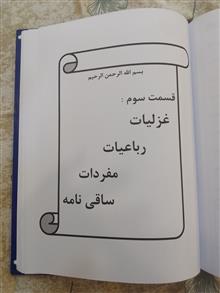 بسم الله الرحمن الرحیم
قسمت سوم :
غزلیات
رباعیات
مفردات
ساقی نامه